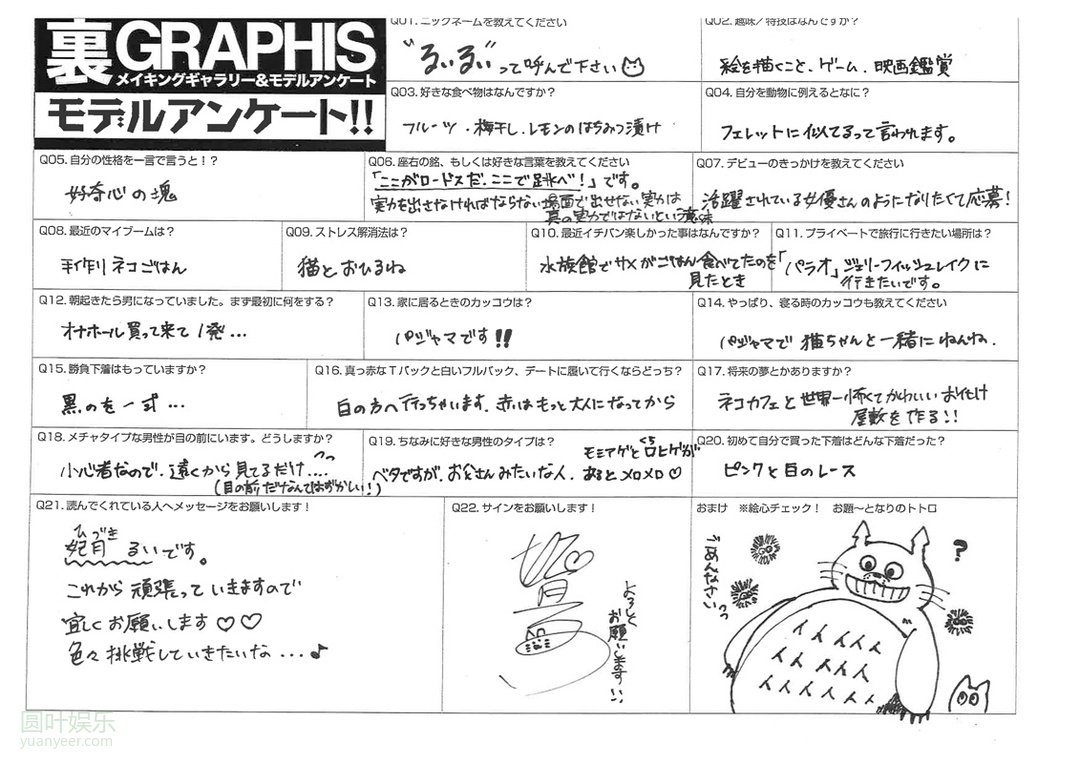 裏GRAPHIS
メイキングギャラリー&モデルアンケート
モデルアンケート!!
Q01.ニックネームを教えてください
"るいるい"って呼んで下さい
Q02.趣味/特技はなんですか?
絵を描くこと、ゲーム、映画鑑賞
Q03.好きな食べ物はなんですか?
フルーツ・梅干し、レモンのはちみつ漬け
Q04.自分を動物に例えるとなに?
フェレットに似てるって言われます。
Q05.自分の性格を一言で言うと!?
好奇心の塊
Q06.座右の銘、もしくは好きな言葉を教えてください
「ここがロードスだ、ここで跳べ!」です。
実力を出さなければならない場面で出せない実力は
真の実力ではないという意味
Q07.デビューのきっかけを教えてください
活躍されている女優さんのようになりたくて応募!
Q08.最近のマイブームは?
手作りネコごはん
Q09.ストレス解消法は?
猫とおひるね
Q10.最近イチバン楽しかった事はなんですか?
水族館でサメがごはん食べてたのを
見たとき
Q11.プライベートで旅行に行きたい場所は?
「パラオ」ジェリーフィッシュレイクに
行きたいです。
Q12.朝起きたら男になっていました。まず最初に何をする?
オナホール買って来て1発...
Q13.家に居るときのカッコウは?
パジャマです!!
Q14.やっぱり、寝る時のカッコウも教えてください
パジャマで猫ちゃんと一緒にねんね。
Q15.勝負下着はもっていますか?
黒のを一式...
Q16.真っ赤なTバックと白いフルバック、デートに履いて行くならどっち?
白の方へ行っちゃいます。赤はもっと大人になってから
Q17.将来の夢とかありますか?
ネコカフェと世界一怖くてかわいいお化け
屋敷を作る!!
Q18.メチャタイプな男性が目の前にいます。どうしますか?
小心者なので、遠くから見てるだけ....
(目の前だなんてはずかしい!)
Q19.ちなみに好きな男性のタイプは?
モミアゲと口ヒゲが
くち
ベタですが、お父さんみたいな人。あるとメロメロ♡
Q20.初めて自分で買った下着はどんな下着だった?
ピンクと白のレース
Q21.読んでくれている人へメッセージをお願いします!
ひづき
妃月 るいです。
これから頑張っていきますので
宜しくお願いします♡♡
色々挑戦していきたいな...♪
Q22.サインをお願いします!
よろしく
お願いします!!
おまけ ※絵心チェック! お題~となりのトトロ
ごめんなさいっっ
?
圆叶娱乐
yuanyeer.com